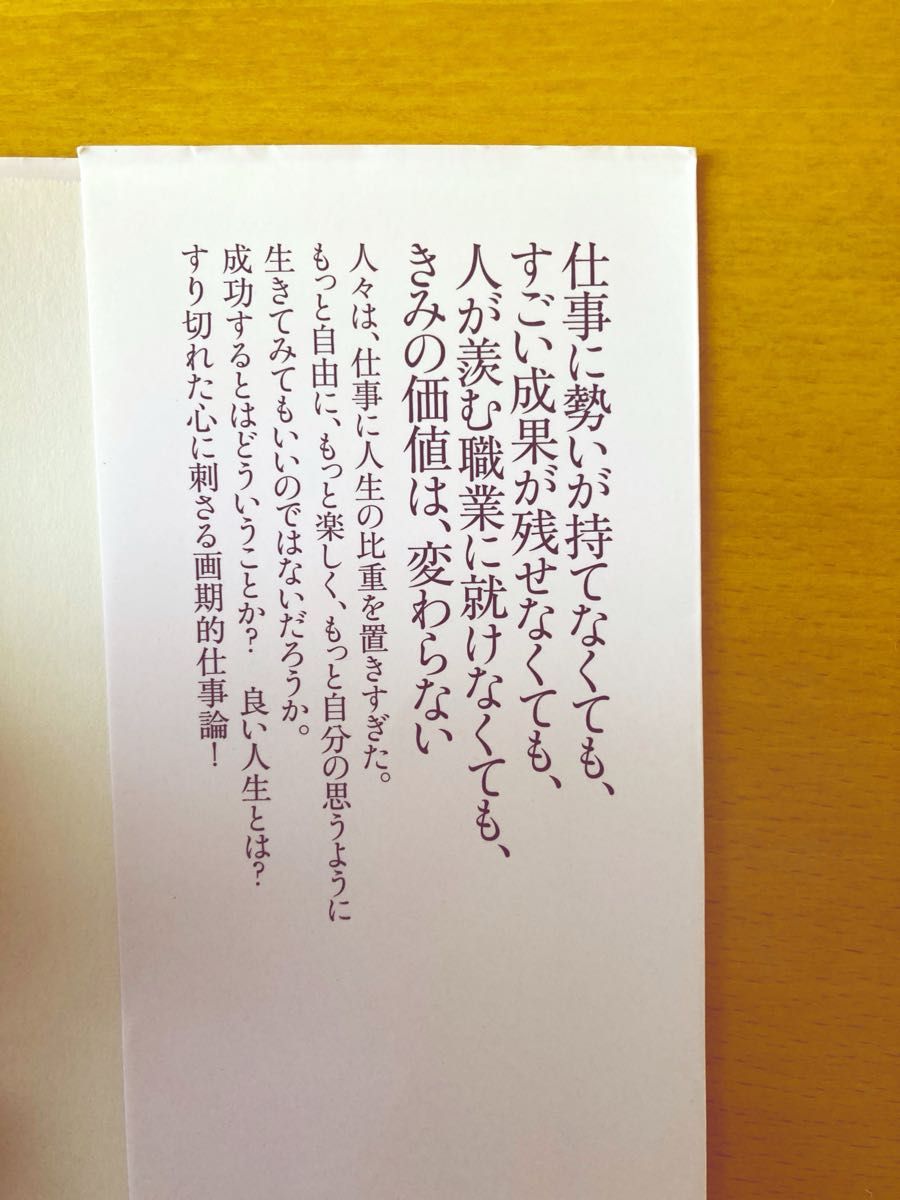 仕事に勢いが持てなくても、
すごい成果が残せなくても、
人が羨む職業に就けなくても、
きみの価値は、変わらない
人々は、仕事に人生の比重を置きすぎた。
もっと自由に、もっと楽しく、もっと自分の思うように
生きてみてもいいのではないだろうか。
成功するとはどういうことか？　良い人生とは？
すり切れた心に刺さる画期的仕事論！